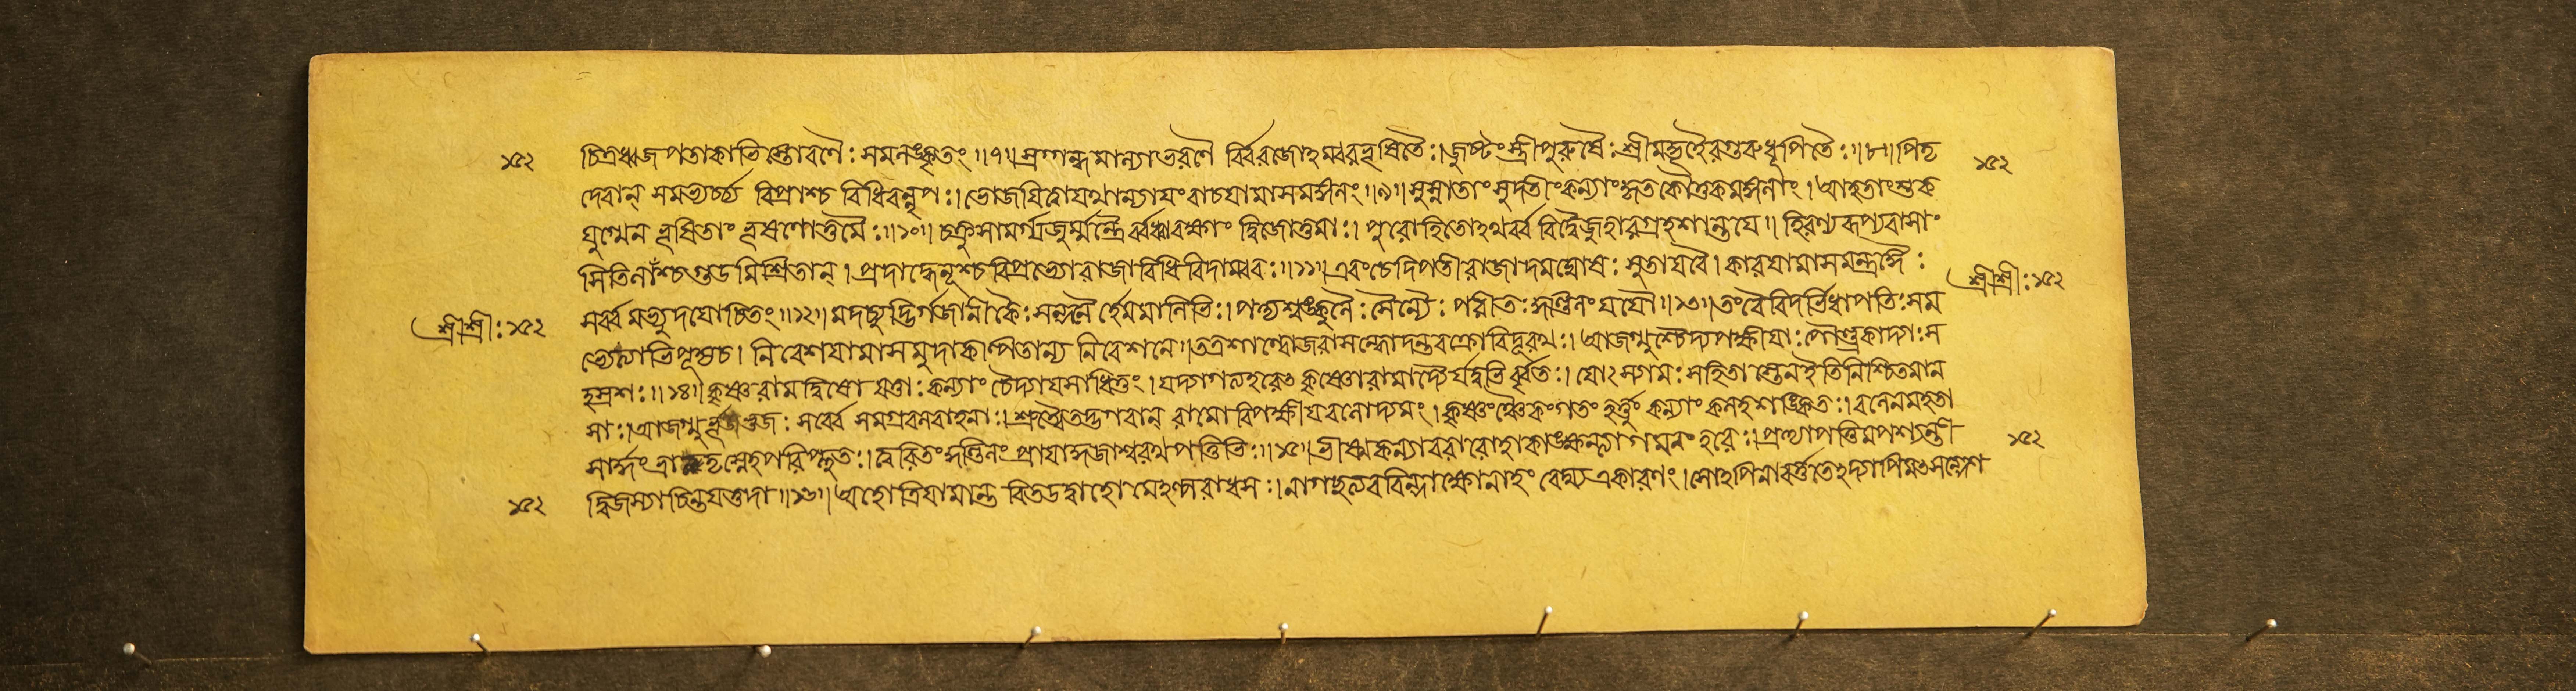 ১৫২ চিত্রধ্বজপতাকাভিস্তোরণৈঃ সমলঙ্কৃতং ॥৭॥ স্রগ্গন্ধমাল্যাভরণৈ র্বিরজোঽম্বরভূষিতৈঃ। জুষ্টংস্ত্রীপুরুষৈঃ শ্রীমদ্গৃহৈরগুরুধূপিতৈঃ॥৮॥ পিতৃ ১৫২
দেবান্ সমভ্যর্চ্চ্য বিপ্রাংশ্চ বিধিবন্নৃপঃ। ভোজযিত্বাযথান্যাযং বাচযামাসমঙ্গলং॥৯॥ সুস্নাতাং সুদতীংকন্যাংকৃতকৌতুকমঙ্গলাং। আহতাংশুক
যুগ্মেন ভূষিতাং ভূষণোত্তমৈঃ॥১০॥ চক্রুঃসামর্গ্যজুর্ম্মন্ত্রৈর্বধ্বারক্ষাং দ্বিজোত্তমাঃ। পুরোহিতোঽথর্ব্ব বিদ্বৈজুহাবগ্রহশান্তযে॥ হিরণ্যরূপ্যবাসাং
সিতিলাঁশ্চগুডমিশ্রিতান্। প্রদাদ্ধেনূশ্চবিপ্রেভ্যোরাজাবিধিবিদাম্বরঃ॥১১॥ এবংচেদিপতীরাজাদমঘোষঃ সুতাযবৈ। কারযামাসমন্ত্রজ্ঞৈঃ শ্রীশ্রীঃ১৫২
শ্রীশ্রীঃ১৫২ সর্ব্ব মভ্যুদযোচিতং॥১২॥ মদচ্যুদ্ভির্গজানীকৈঃ স্যন্দনৈ র্হেমমালিভিঃ। পত্ত্যশ্বসঙ্কুলৈঃ সৈন্যৈঃ পরীতঃ কুণ্ডিনং যযৌ॥১৩॥ তংবৈবিদর্ভাধিপতিঃসম
ভ্যেত্যাভিপূজ্যচ। নিবেশযামাসমুদাকল্পিতান্য নিবেশনে॥ তত্রশাল্বোজরাসন্ধোদন্তবক্রোবিদূরথঃ। আজগ্মুশ্চৈদ্যপক্ষীযাঃ পৌণ্ড্রকাদ্যাঃস
হস্রশঃ॥১৪॥ কৃষ্ণরামদ্বিষো যত্তাঃ কন্যাং চৈদ্যাযসাধিতুং। যদ্যাগত্যহরেৎ কৃষ্ণোরামাদ্যৈ র্যদুভি র্বৃতঃ। যোৎস্যামঃ সংহিতাস্তেনইতিনিশ্চিতমান
সাঃ। আজগ্মু র্ভূভুজঃ সর্ব্বে সমগ্রবলবাহনাঃ। শ্রুত্বৈতদ্ভগবান্ রামোবিপক্ষীযবলোদ্যমং। কৃষ্ণংচৈকংগতং হর্ত্তুং কন্যাং কলহশঙ্কিতঃ। বলেনমহতা
সার্দ্ধংভ্রাতৃস্নেহপরিপ্লুতঃ। ত্বরিতংকুণ্ডিনং প্রাযাদ্গজাশ্বরথপত্তিভিঃ॥১৫॥ ভীষ্মকন্যাবরারোহাকাঙ্ক্ষন্ত্যাগমনং হরেঃ। প্রত্যাপত্তিমপশ্যন্তী ১৫২
১৫২ দ্বিজস্যাচিন্তযত্তদা॥১৬॥ অহোত্রিযামান্ত রিতউদ্বাহোমেঽল্পরাধসঃ। নাগচ্ছত্যরবিন্দাক্ষোনাহং বেদ্ম্যত্রকারণং। সোঽপিনাবর্ত্ততেঽদ্যাপিমৎসন্দেশ